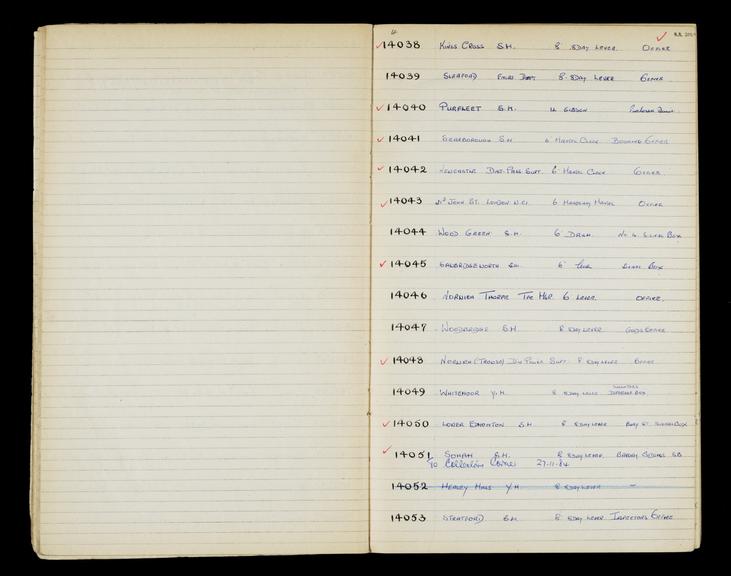 14038 KINGS CROSS S.H. 8" 8DAY LEVER. OFFICE
14039 SLEAFORD ENGRS. DEPT 8" 8DAY LEVER OFFICE
14040 PURFLEET S.M. GIBSON
14041 SCARBOROUGH S.M 6 MANTEL CLOCK BOOKING OFFICE
14042 NEWCASTLE DIST. PASS. SUPT. 6" MANTEL CLOCK OFFICE
14043 ST JOHN ST. LONDON N.C.I. 6 MAHOGANY MANTEL OFFICE
14044 WOOD GREEN S.M. 6" DRUM. No 4 SIGNAL BOX
14045 SAWBRIDGEWORTH S.M. 6" SIGNAL BOX
14046 NORWICH THORPE TFC MGR 6 LEVER OFFICE.
14047 WOODBRIDGE S.M 8 8DAY LEVER GOODS OFFICE
14048 NORWICH (TROWSE) SUPT. 8 8DAY LEVER OFFICE
14049 WHITEMOOR Y.M. 8 8DAY LEVER BOX
14050 LOWER EDMONTON S.M 8 8DAY LEVER BURY ST. SIGNAL BOX
14051 SOHAM S.M. 8 8DAY LEVER. BARWAY SIDINGS SB
TO Collectors Corner 27.11.84
14052 HEALEY MILLS Y.M. 8 8DAY LEVER —
14053 STRATFORD S.M. 8" 8DAY LEVER INSPECTORS OFFICE